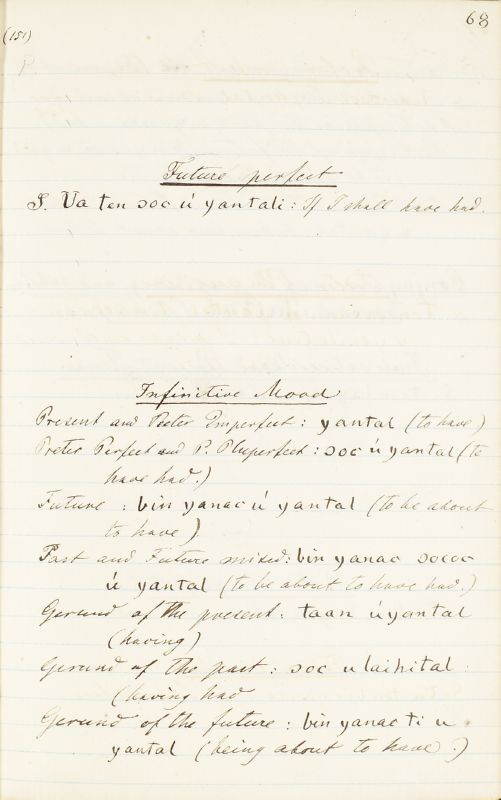 68
(151)
Future perfect
S. Ua ten ɔoc ú yantali: If I shall have had.
Infinitive Mood
Present and Preter Imperfect: yantal (to have)
Preter Perfect and P. Pluperfect: ɔoc ú yantal (to
have had.)
Future: bin yanac ú yantal (to be about
to have).
Past and Future mixed: bin yanac ɔococ
ú yantal (to be about to have had.)
Gerund of the present: taan ú yantal
(having)
Gerund of the past: ɔoc u laihital:
(having had
Gerund of the future: bin yanac ti u
yantal (being about to have.)